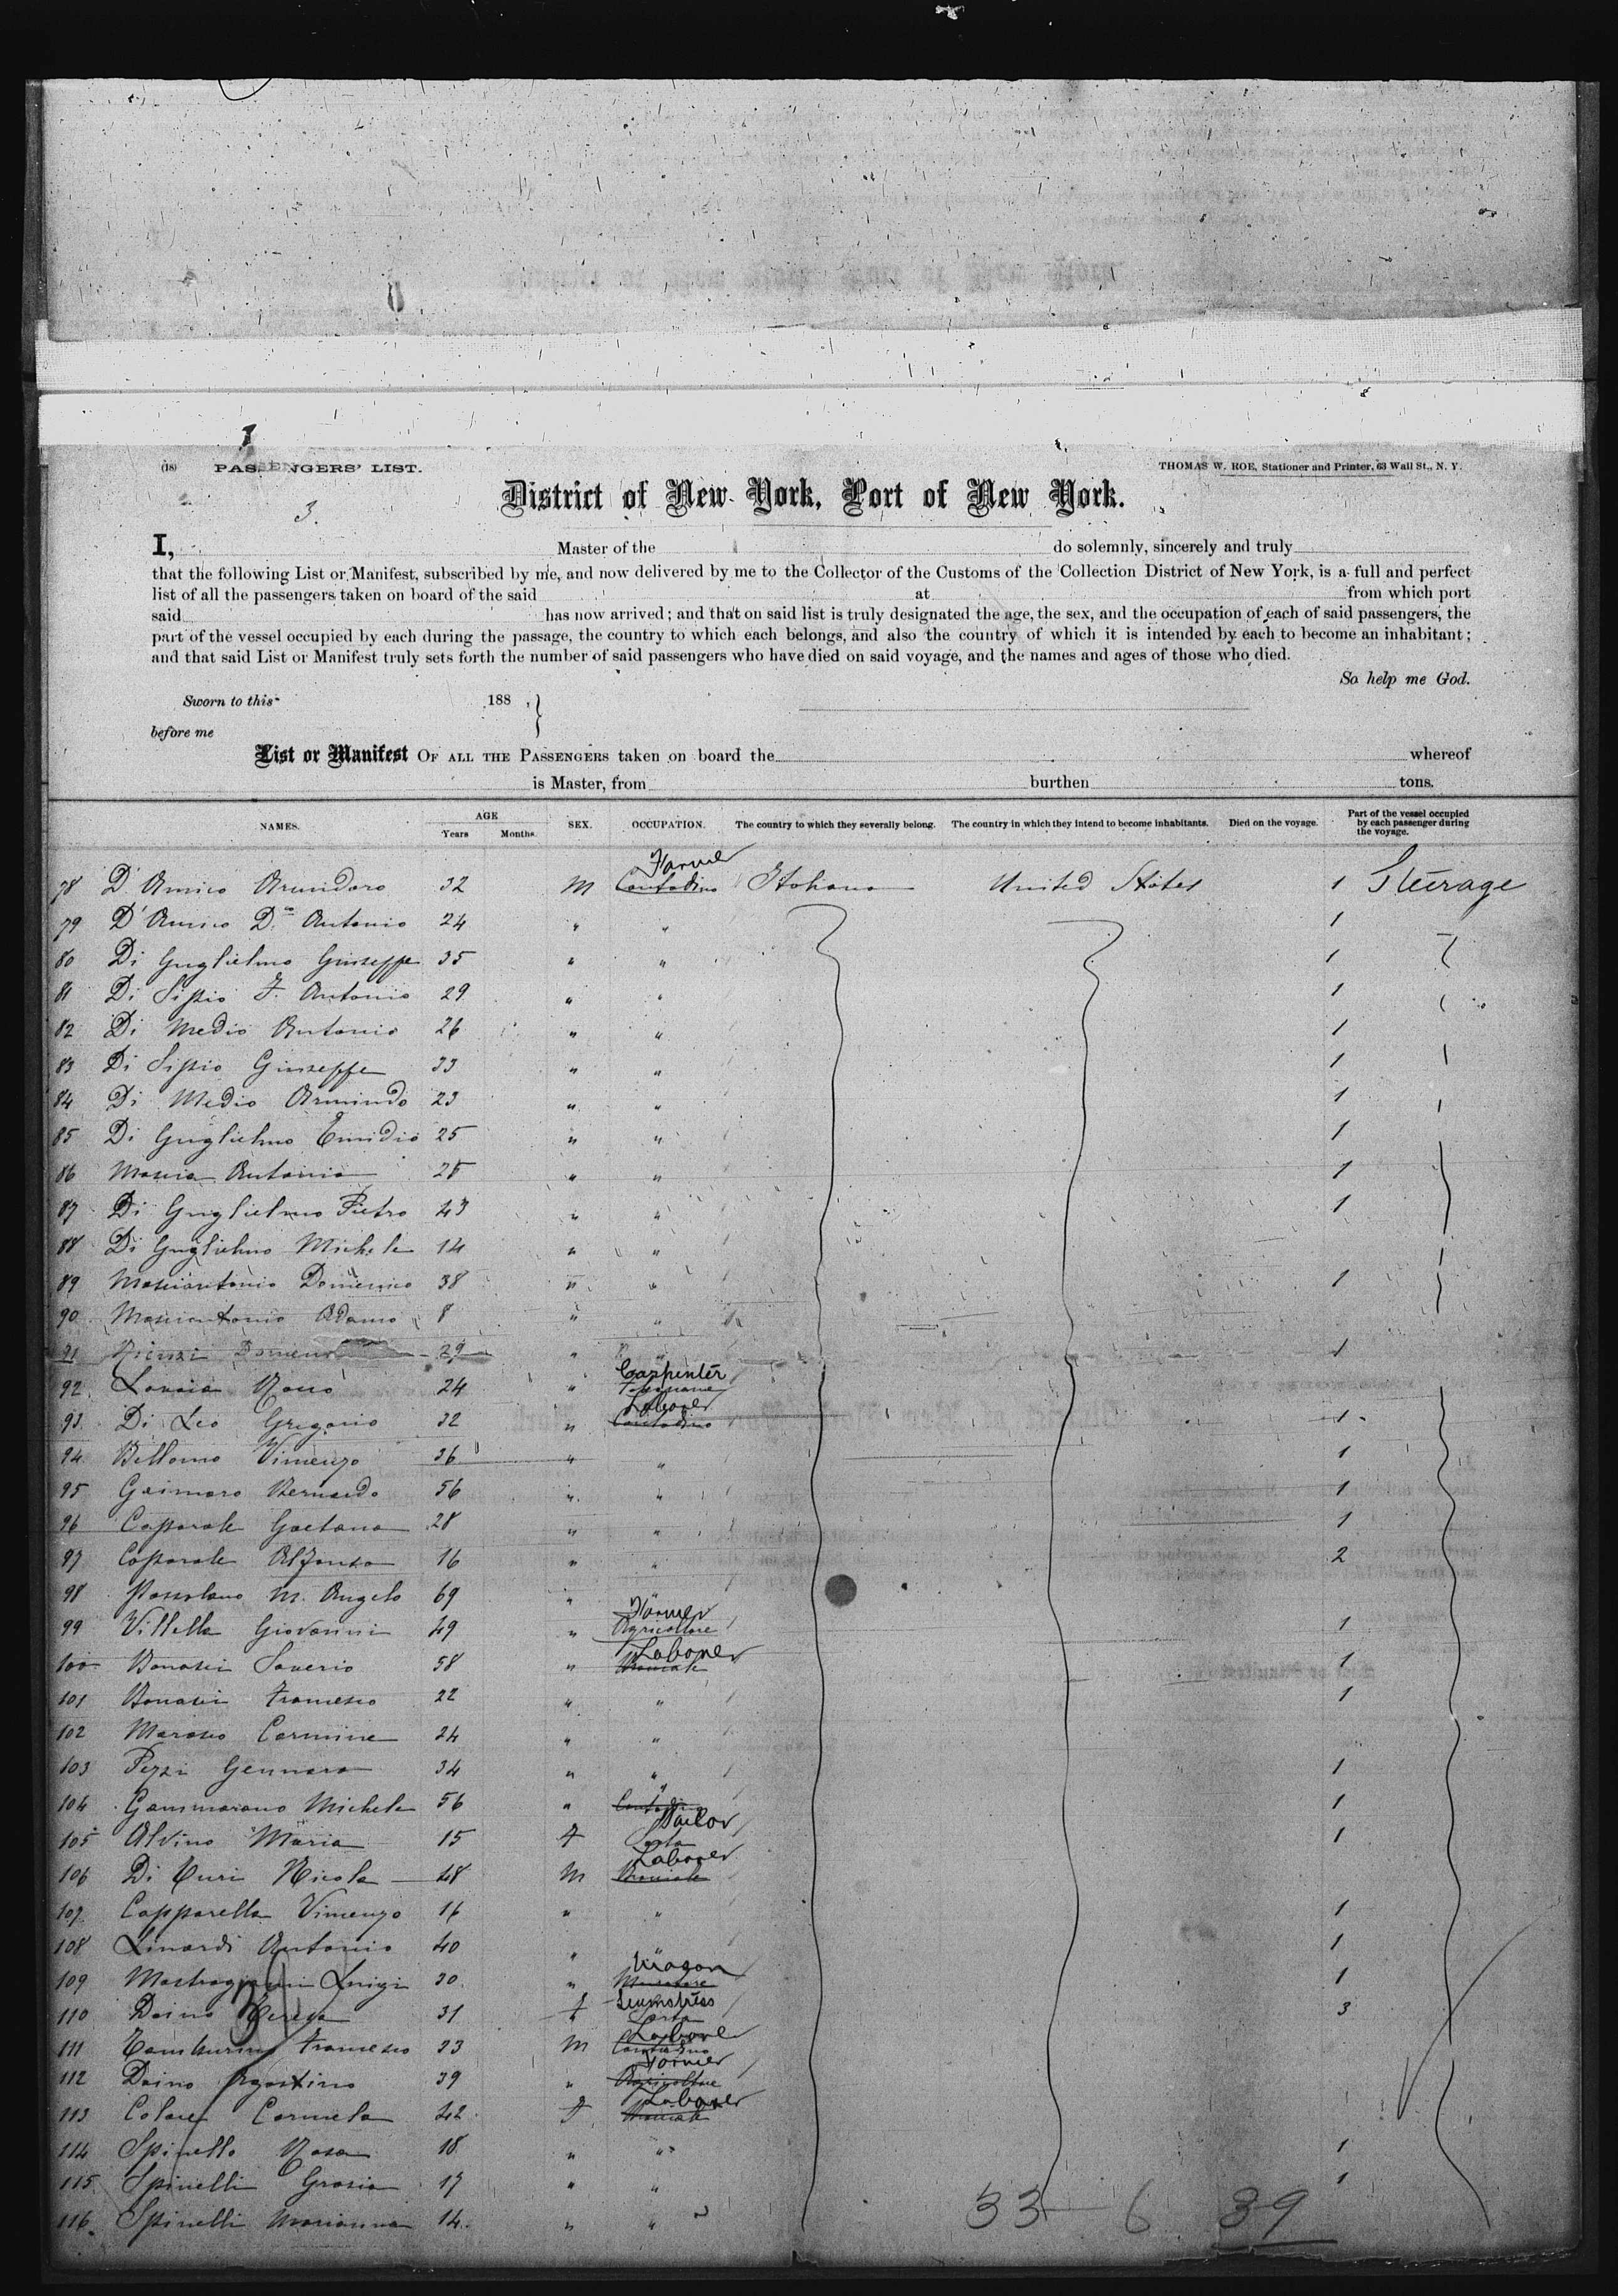 (18) PASSENGERS' LIST.
THOMAS W. ROE, Stationer and Printer, 63 Wall St., N. Y.
3.
District of New York, Port of New York.
I, Master of the do solemnly, sincerely and truly
that the following List or Manifest, subscribed by me, and now delivered by me to the Collector of the Customs of the Collection District of New York, is a full and perfect
list of all the passengers taken on board of the said at from which port
said has now arrived; and that on said list is truly designated the age, the sex, and the occupation of each of said passengers, the
part of the vessel occupied by each during the passage, the country to which each belongs, and also the country of which it is intended by each to become an inhabitant;
and that said List or Manifest truly sets forth the number of said passengers who have died on said voyage, and the names and ages of those who died.
So help me God.
Sworn to this 188 ,
before me
List or Manifest OF ALL THE PASSENGERS taken on board the whereof
is Master, from burthen tons.
NAMES. AGE Years Months. SEX. OCCUPATION. The country to which they severally belong. The country in which they intend to become inhabitants. Died on the voyage. Part of the vessel occupied by each passenger during the voyage.
Farmer
78 D'Amico 32 M Contadino Italiana United States 1 Steerage
79 D'Amico Do. Antonio 24 " " 1
80 Di Guglielmo Giuseppe 35 " " 1
81 Di Sipio F. Antonio 29 " " 1
82 Di Medio Antonio 26 " " 1
83 Di Sipio Giuseppe 33 " " 1
84 Di Medio Armindo 23 " " 1
85 Di Guglielmo Emidio 25 " " 1
86 Antonio 28 " " 1
87 Di Guglielmo Pietro 43 " " 1
88 Di Guglielmo Michele 14 " "
89 Masciantonio Domenico 38 " " 1
90 Masciantonio Adamo 8 " "
91 29 " " 1
Carpenter
92 Rocco 24 "
Laborer
93 Di Leo Gregorio 32 " Contadino 1
94 Bellomo Vincenzo 36 " " 1
95 Gaimaro Bernardo 56 " " 1
96 Caporale Gaetano 28 " " 1
97 Caporale Alfonso 16 " " 2
98 M. Angelo 69 "
Farmer
99 Villella Giovanni 49 " Agricoltore 1
Laborer
100 Bonasci Saverio 58 " Bracciale 1
101 Bonasci Francesco 22 " " 1
102 Carmine 24 " "
103 Pezzi Gennaro 34 " " 1
104 Gammarano Michele 56 " Contadino 1
Tailor
105 Alvino Maria 15 F Sarta 1
Laborer
106 Nicola 48 M Bracciale
107 Capparella Vincenzo 16 " " 1
108 Linardi Antonio 40 " 1
Mason
109 Luigi 30 " Muratore 1
Seamstress
110 Daino Teresa 31 f Sarta 3
Laborer
111 Tamburino Francesco 23 M Contadino
Farmer
112 Daino Agostino 39 " Agricoltore
Laborer
113 Carmela 42 F Bracciale
114 Spinello Rosa 18 " " 1
115 Spinelli Grazia 17 " " 1
116 Spinelli Marianna 14 " "
33 6 39